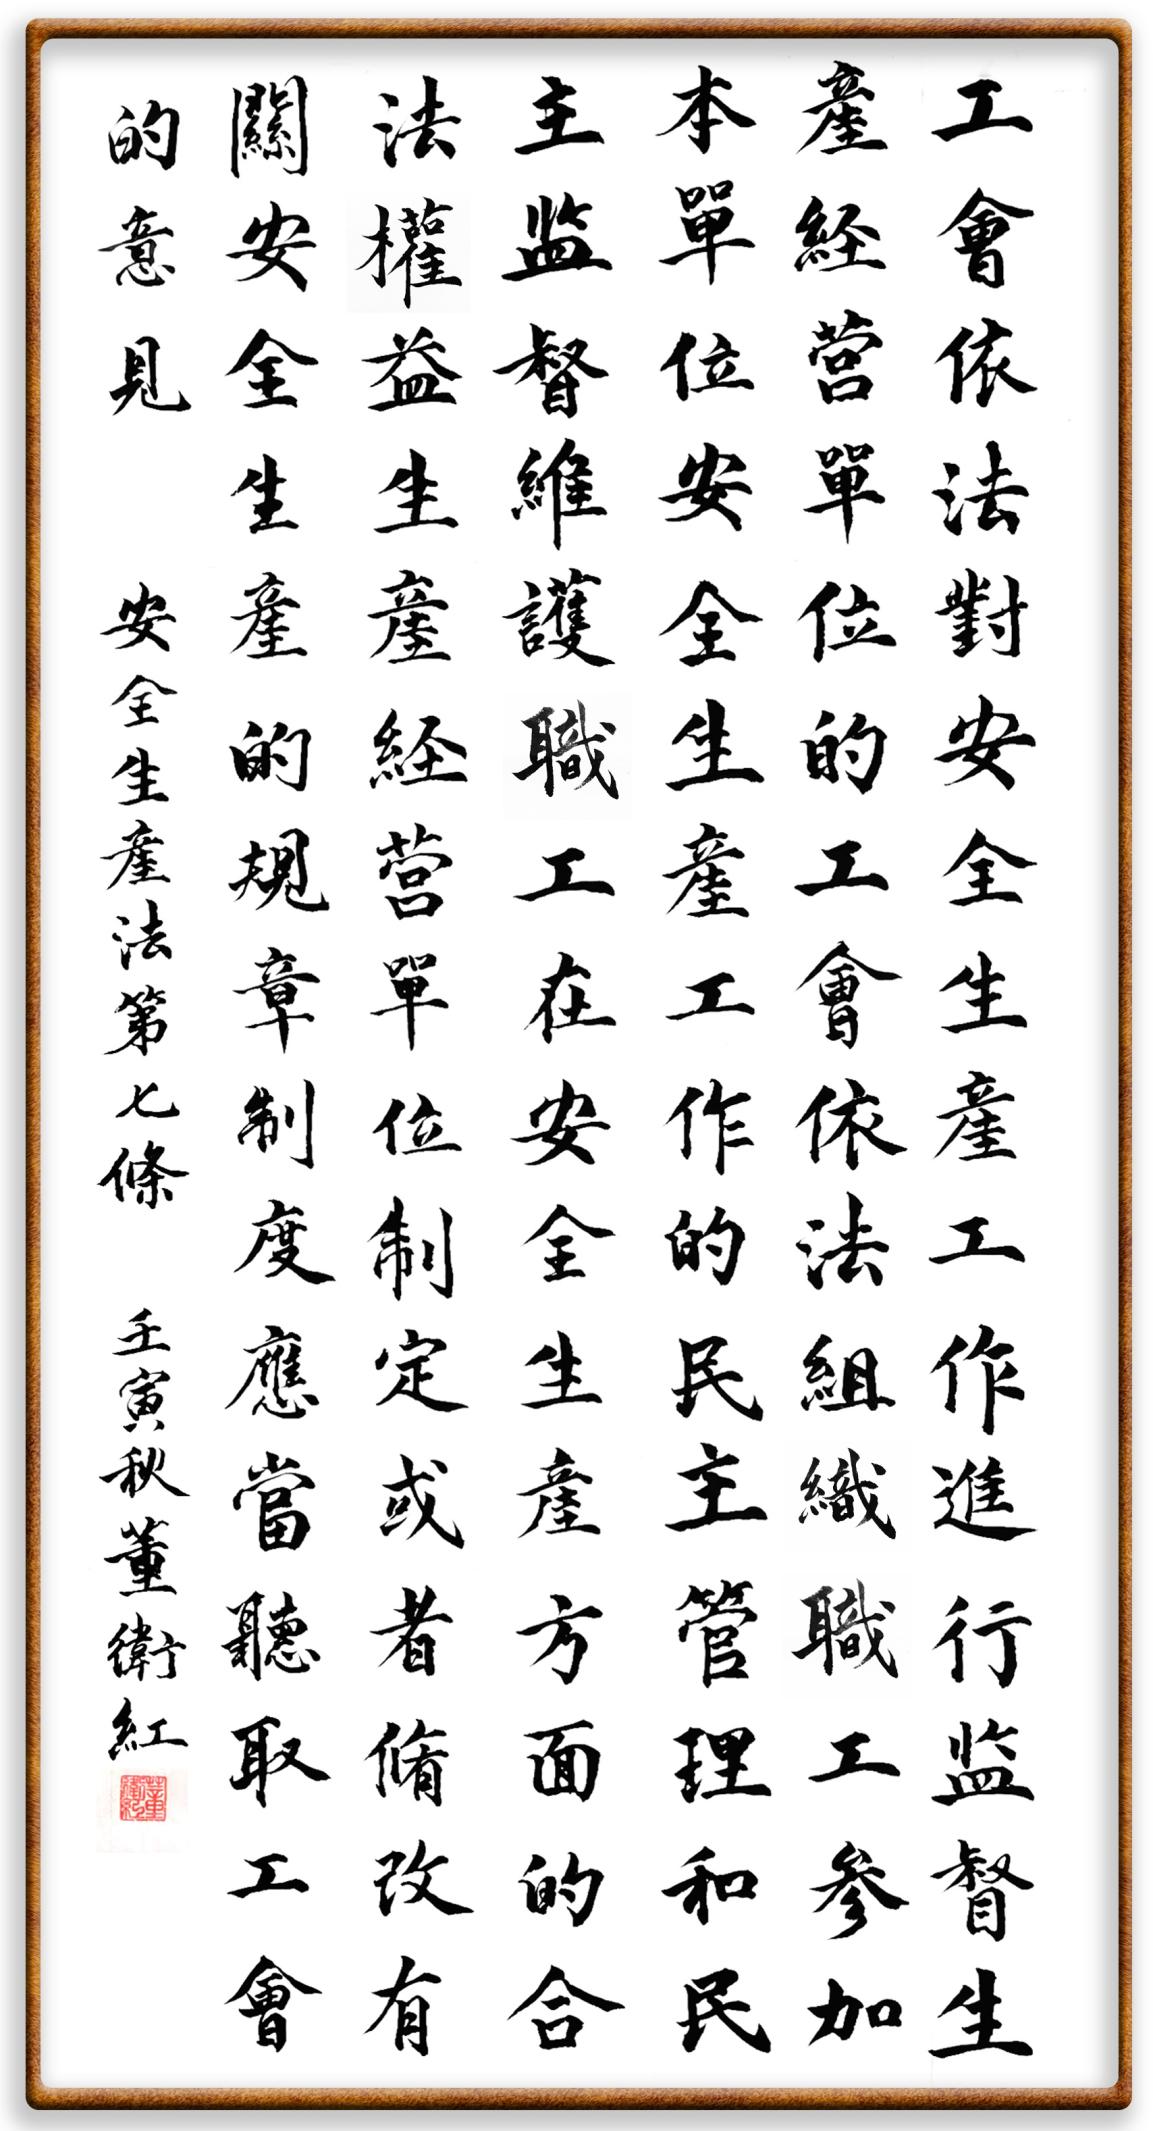 工會依法對安全生產工作進行监督生
產経营單位的工會依法組織職工參加
本單位安全生產工作的民主管理和民
主监督維護職工在安全生產方面的合
法權益生產経营單位制定或者脩改有
關安全生產的規章制度應當聽取工會
的意見
安全生產法第七條
壬寅秋董衛紅
董衛紅